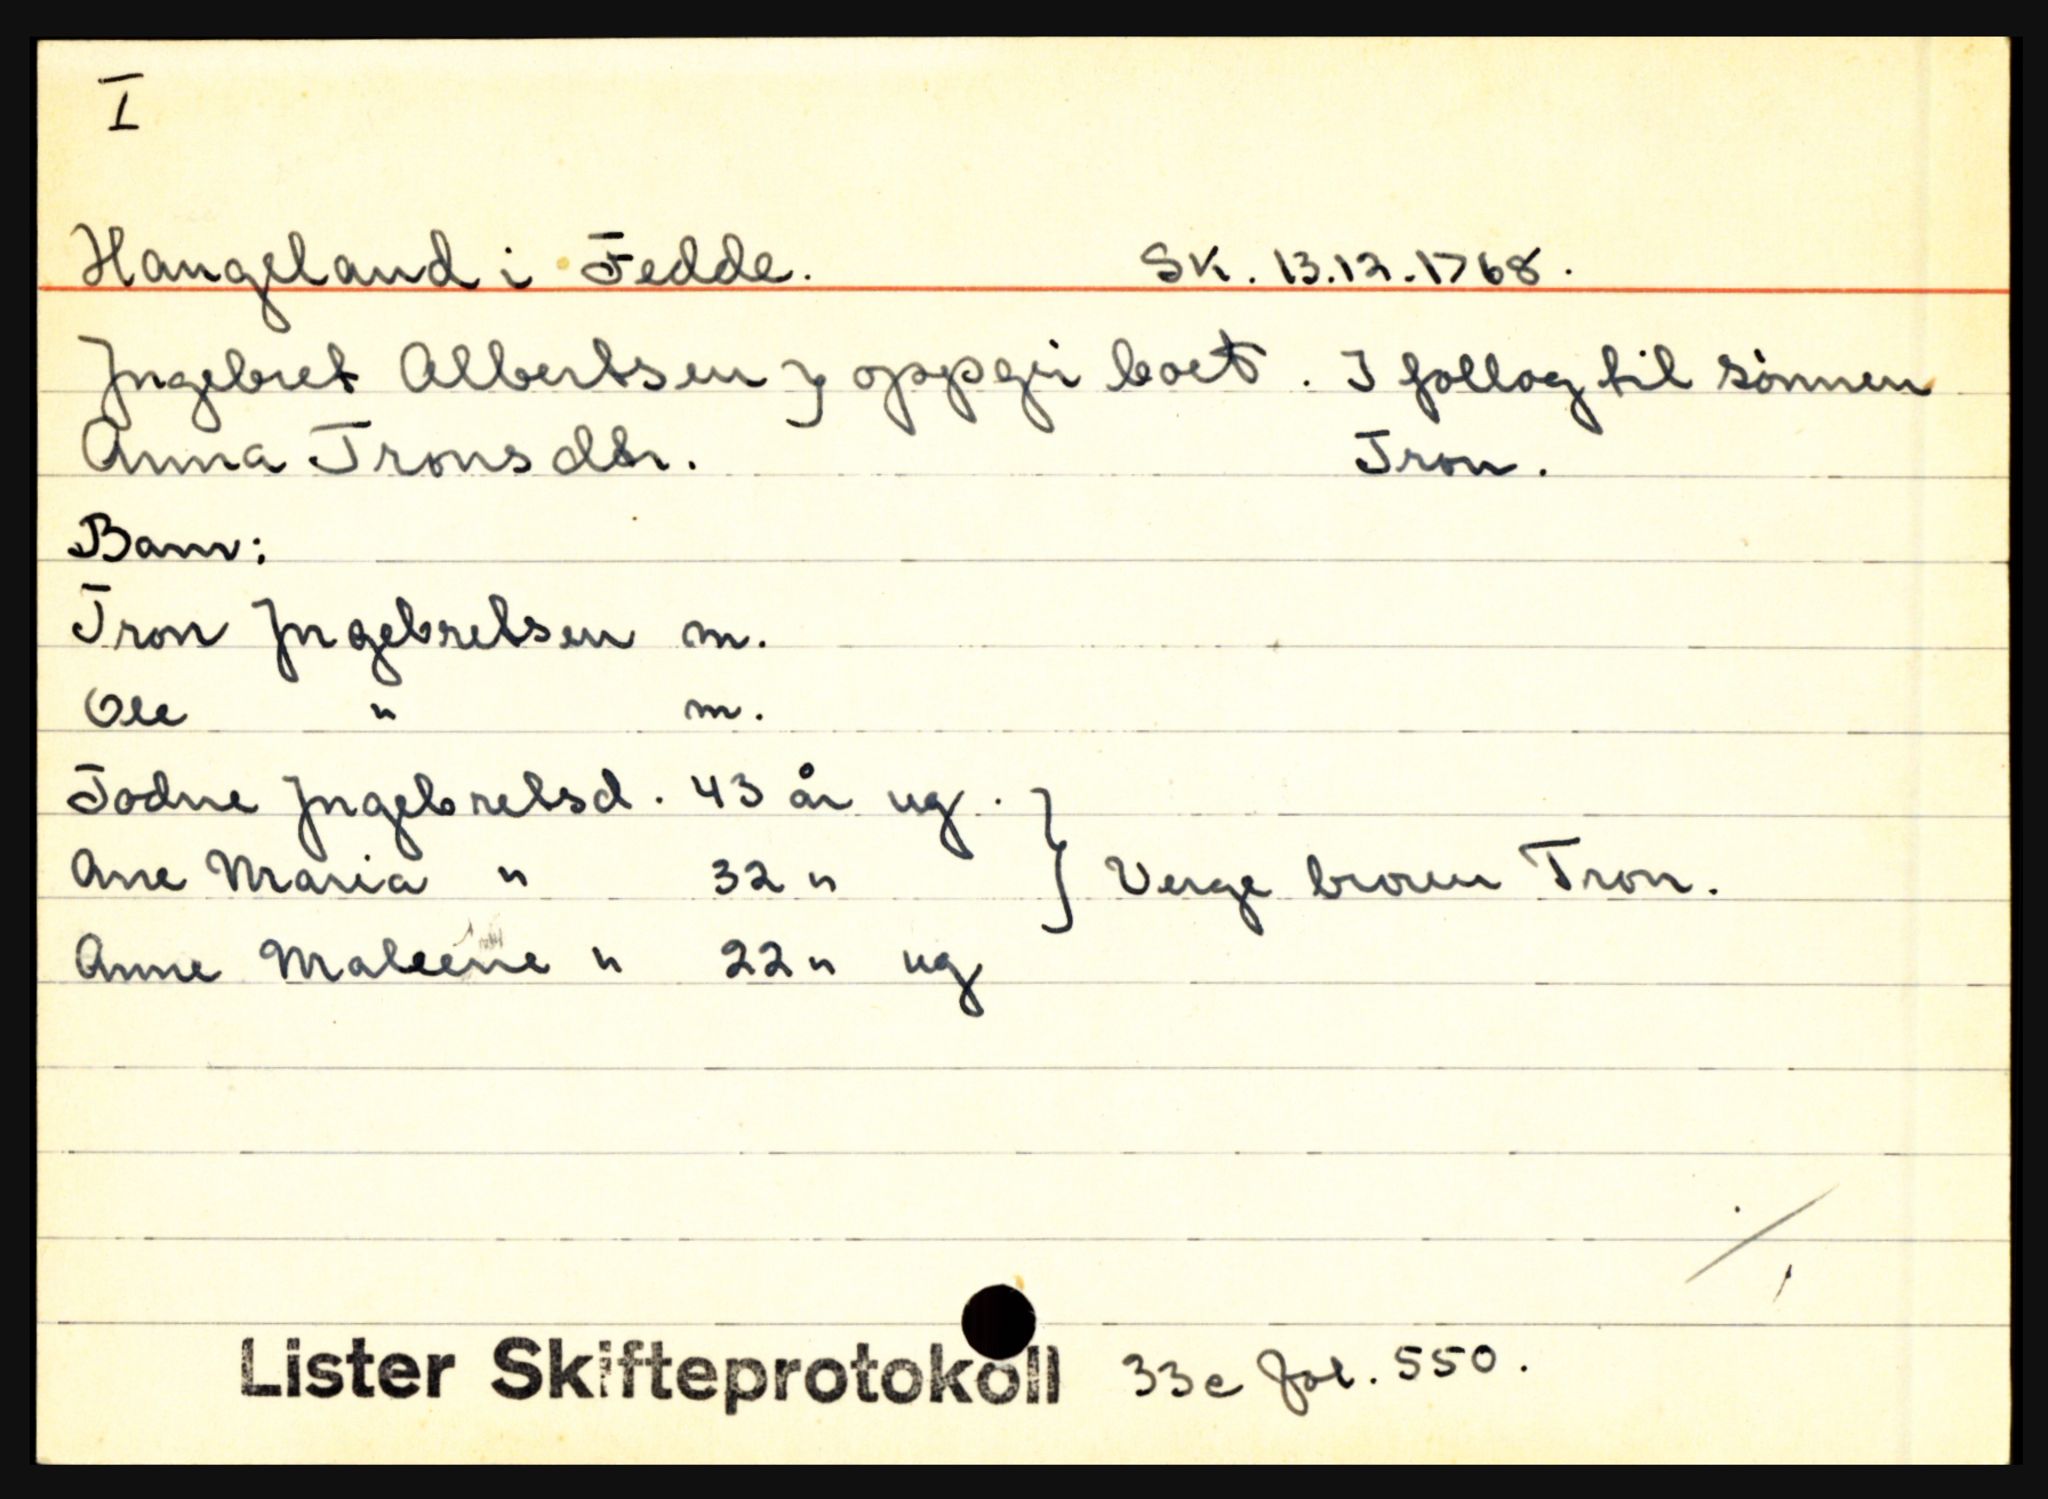 I
Haugeland i Fedde. Sk. 13.12.1768.
Ingebret Albertsen } oppgir boet. I follog til sønnen
Anna Tronsdtr. Tron.
Barn:
Tron Ingebretsen m.
Ole " m.
Todne Ingebretsd. 43 år ug.
Ane Maria " 32 " } Verge broren Tron.
Anne Maleene " 22 " ug
Lister Skifteprotokoll 33c fol. 550.